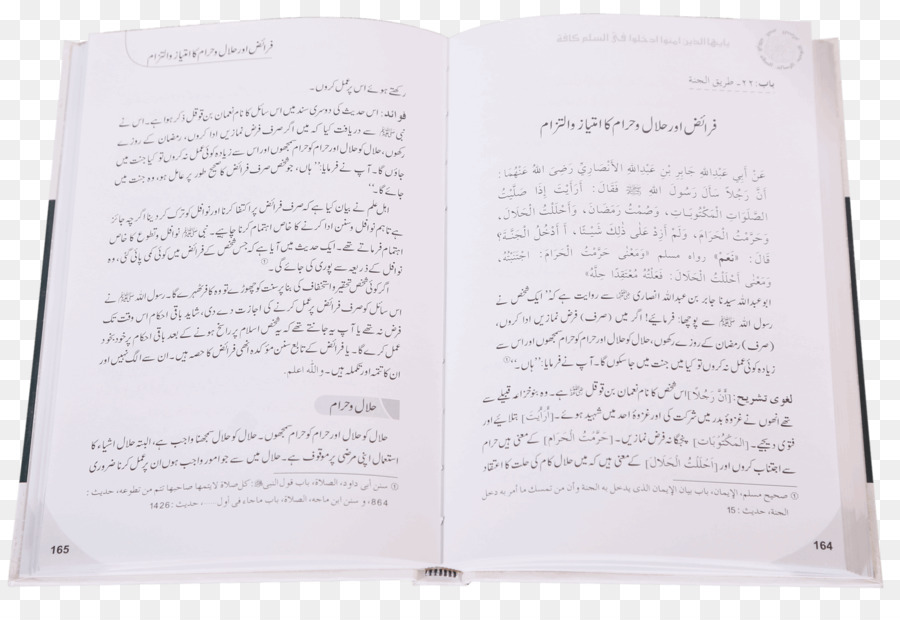 یایها الذین امنوا ادخلوا فی السلم کافة
باب:۲۲۔ طریق الجنة
فرائض اور حلال و حرام کا امتیاز و التزام
عَنْ أَبِي عَبْدِاللهِ جَابِرِ بْنِ عَبْدِاللهِ الأَنْصَارِيِّ رَضِيَ اللهُ عَنْهُمَا:
أَنَّ رَجُلاً سَأَلَ رَسُولَ اللهِ ﷺ فَقَالَ: أَرَأَيْتَ إِذَا صَلَّيْتُ
الصَّلَوَاتِ الْمَكْتُوبَاتِ، وَصُمْتُ رَمَضَانَ، وَأَحْلَلْتُ الْحَلَالَ،
وَحَرَّمْتُ الْحَرَامَ، وَلَمْ أَزِدْ عَلَى ذَلِكَ شَيْئًا، أَ أَدْخُلُ الْجَنَّةَ؟
قَالَ: «نَعَمْ» رواه مسلم «وَمَعْنَى حَرَّمْتُ الْحَرَامَ: اجْتَنَبْتُهُ،
وَمَعْنَى أَحْلَلْتُ الْحَلَالَ: فَعَلْتُهُ مُعْتَقِدًا حلَّهُ»
ابوعبداللہ سیدنا جابر بن عبداللہ انصاری رضی اللہ عنہما سے روایت ہے کہ ”ایک شخص نے
رسول اللہ ﷺ سے پوچھا: فرمائیے! اگر میں (صرف) فرض نمازیں ادا کروں،
(صرف) رمضان کے روزے رکھوں، حلال کو حلال اور حرام کو حرام سمجھوں اور اس سے
زیادہ کوئی عمل نہ کروں تو کیا میں جنت میں جا سکوں گا۔ آپ نے فرمایا: ”ہاں۔“①
لغوی تشریح: [أَنَّ رَجُلاً] اس شخص کا نام نعمان بن قوقل ہے۔ وہ بنو خزاعہ قبیلے سے
تھے انھوں نے غزوۂ بدر میں شرکت کی اور غزوۂ احد میں شہید ہوئے۔ [أَرَأَيْتَ] بتلائیے اور
فتویٰ دیجیے۔ [الْمَكْتُوبَاتِ] پنجگانہ فرض نمازیں۔ [حَرَّمْتُ الْحَرَامَ] کے معنی ہیں حرام
سے اجتناب کروں اور [أَحْلَلْتُ الْحَلَالَ] کے معنی ہیں کہ میں حلال کام کی حلت کا اعتقاد
① صحیح مسلم، الإيمان، باب بيان الإيمان الذي يدخل به الجنة وأن من تمسك ما أمر به دخل
الجنة، حديث: 15
164
فرائض اور حلال و حرام کا امتیاز و التزام
رکھتے ہوئے اس پر عمل کروں۔
فوائد: اس حدیث کی دوسری سند میں اس سائل کا نام نعمان بن قوقل ذکر ہوا ہے۔ اس نے
نبی ﷺ سے دریافت کیا کہ میں اگر صرف فرض نمازیں ادا کروں، رمضان کے روزے
رکھوں، حلال کو حلال اور حرام کو حرام سمجھوں اور اس سے زیادہ کوئی عمل نہ کروں تو کیا جنت میں
جاؤں گا۔ آپ نے فرمایا: ”ہاں، جو شخص صرف فرائض کا صحیح طور پر عامل ہو، وہ جنت میں
جائے گا۔“
اہل علم نے بیان کیا ہے کہ صرف فرائض پر اکتفا کرنا اور نوافل کو ترک کر دینا اگرچہ جائز
ہے تاہم نوافل و سنن ادا کرنے کا خاص اہتمام کرنا چاہیے۔ نبی ﷺ نوافل و تطوع کا خاص
اہتمام فرماتے تھے۔ ایک حدیث میں آیا ہے کہ جس شخص کے فرائض میں کوئی کمی پائی گئی، وہ
نوافل کے ذریعہ سے پوری کی جائے گی۔①
اگر کوئی شخص تحقیر و استخفاف کی بنا پر سنت کو چھوڑے تو وہ کافر ٹھہرے گا۔ رسول اللہ ﷺ نے
اس سائل کو صرف فرائض پر عمل کرنے کی اجازت دے دی، شاید باقی احکام اس وقت تک
فرض نہ تھے یا آپ یہ جانتے تھے کہ یہ شخص اسلام پر راسخ ہونے کے بعد باقی احکام پر خود بخود
عمل کرے گا۔ یا فرائض کے تابع سنن مؤکدہ بھی فرائض کا حصہ ہیں۔ ان سے الگ نہیں اور
ان کا تتمہ اور تکملہ ہیں۔ واللہ اعلم.
حلال و حرام
حلال کو حلال اور حرام کو حرام سمجھوں۔ حلال کو حلال سمجھنا واجب ہے، البتہ حلال اشیاء کا
استعمال اپنی مرضی پر موقوف ہے۔ حلال میں سے جو امور واجب ہوں ان پر عمل کرنا ضروری
① سنن أبي داود، الصلاة، باب قول النبي ﷺ: كل صلاة لا يتمها صاحبها تتم من تطوعه، حديث:
864، و سنن ابن ماجه، الصلاة، باب ماجاء في أول..... حديث: 1426
165